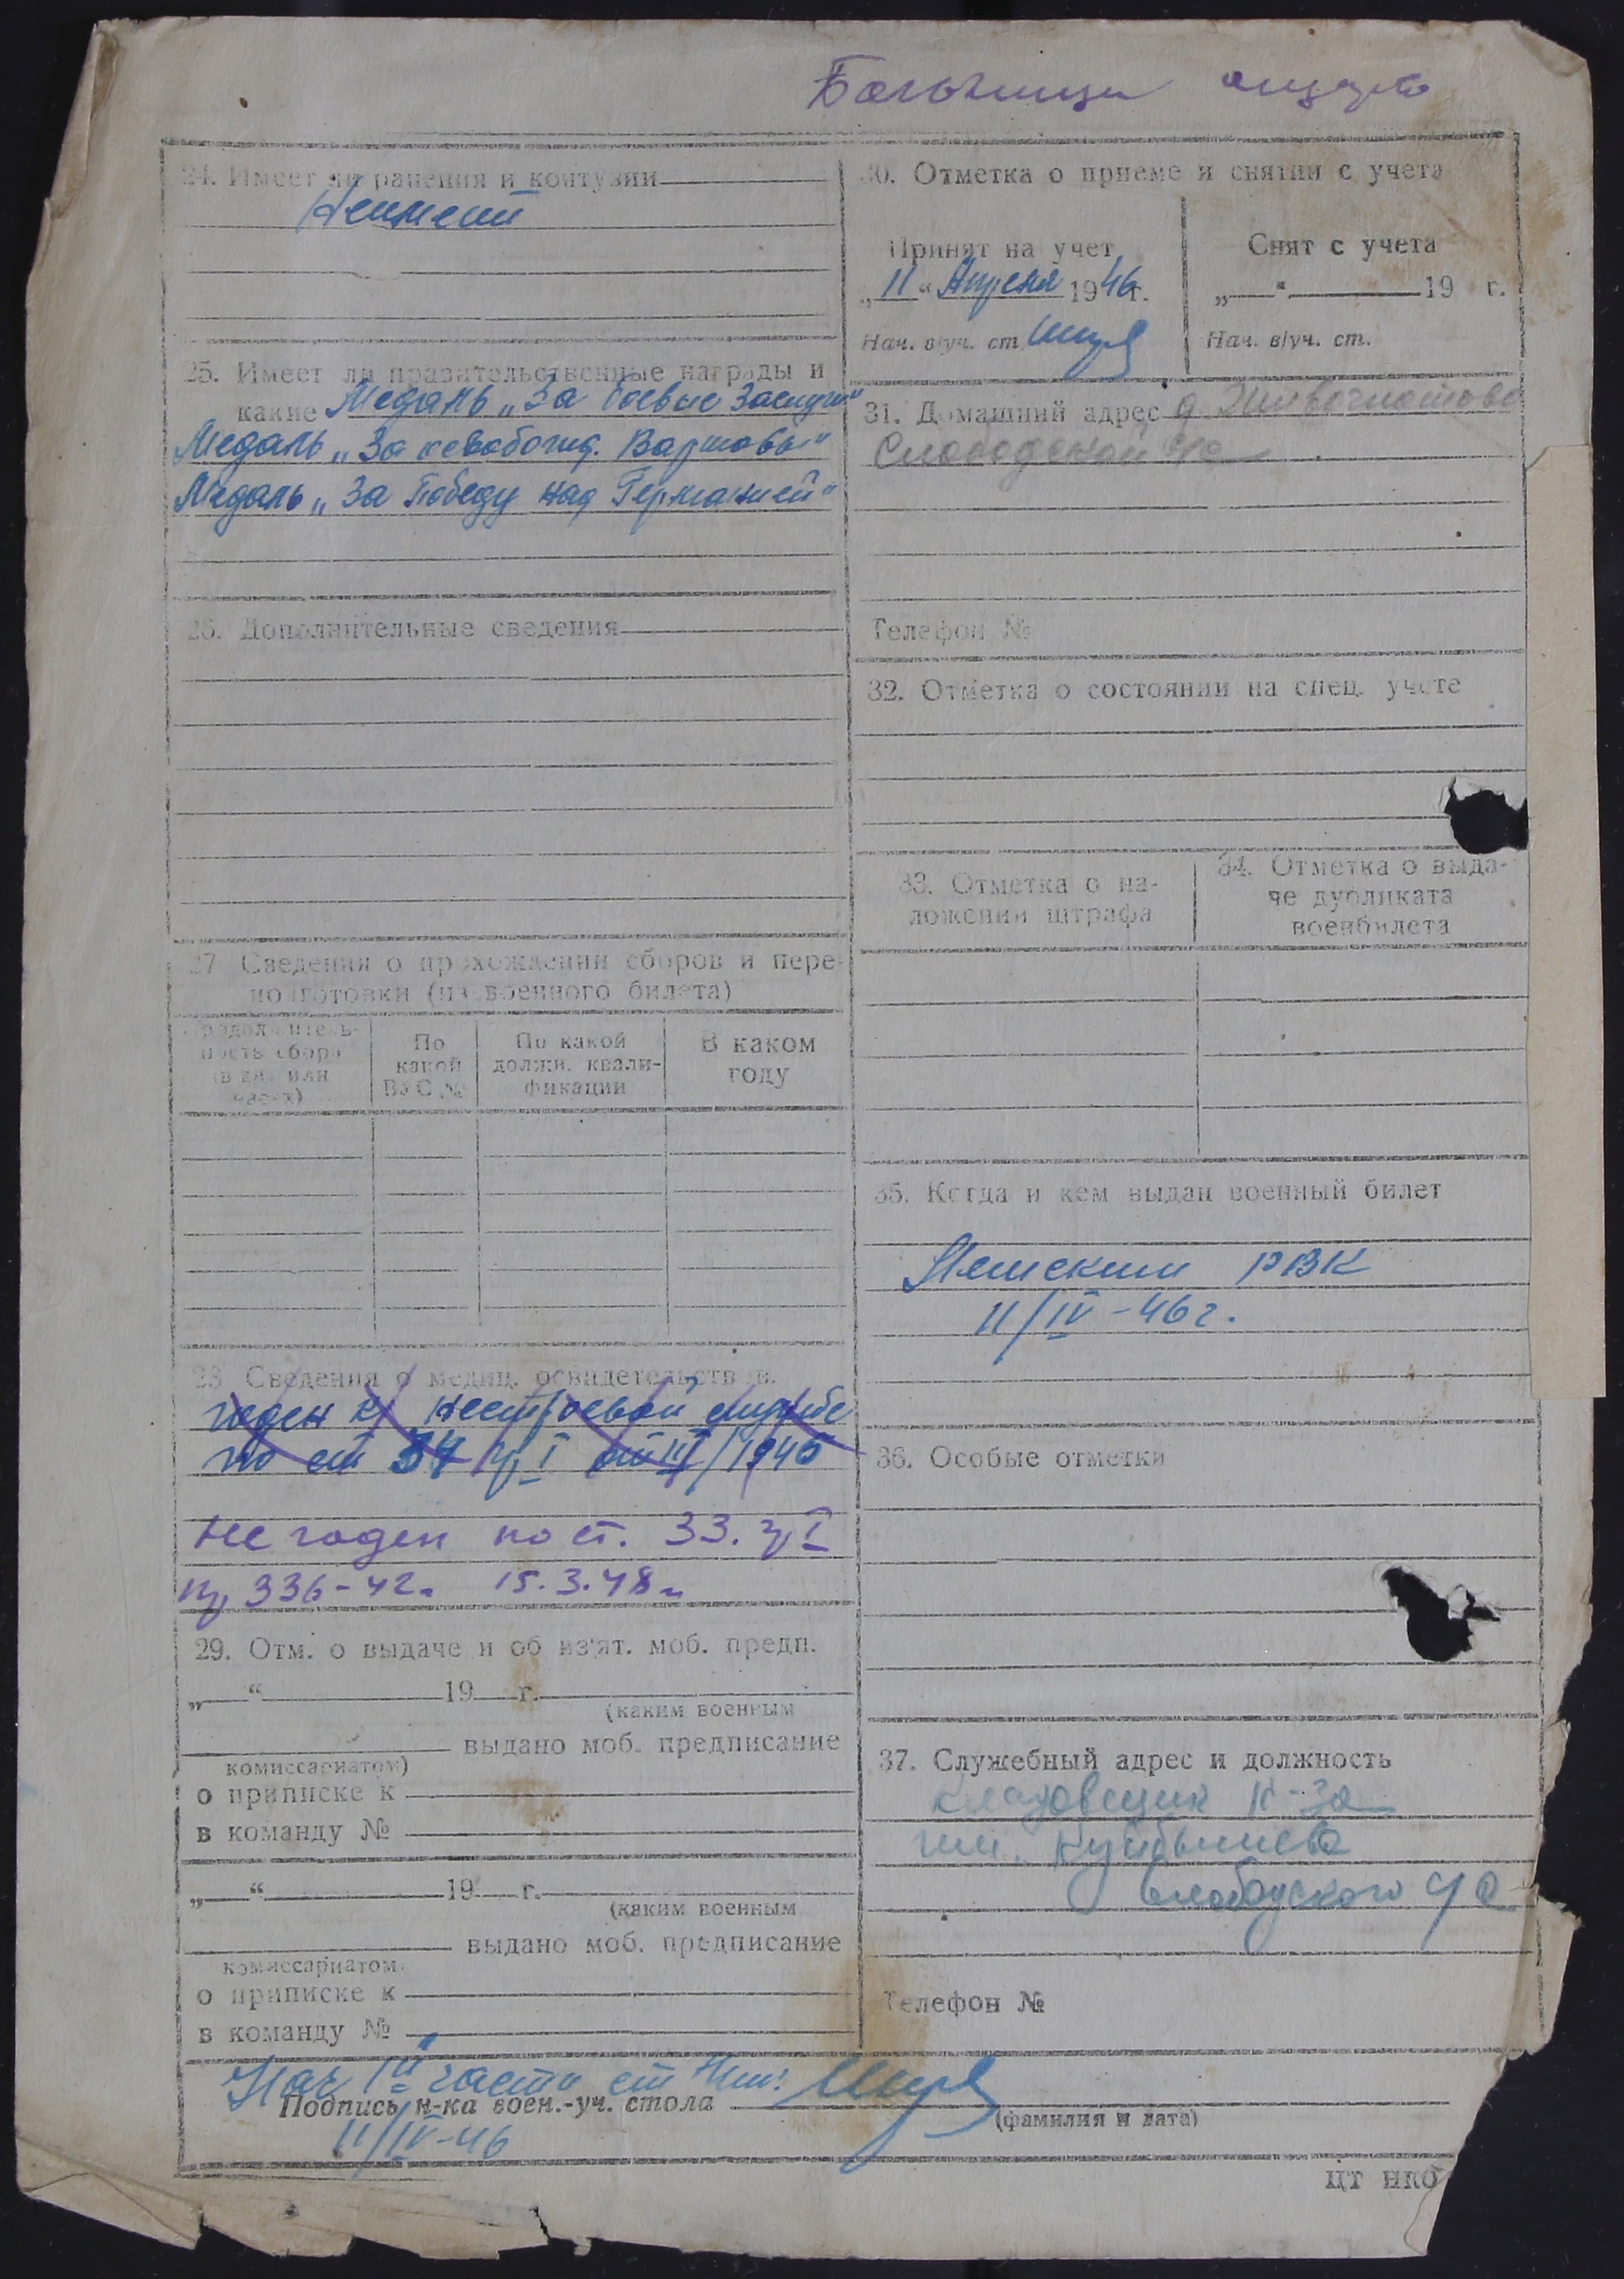 24. Имеет ли ранения и контузии
Неимеет
25. Имеет ли правительственные награды и
какие Медаль „За боевые Заслуги"
Медаль „За освобожд. Варшавы"
Медаль „За Победу над Германией"
26. Дополнительные сведения
27 Сведения о прохождении сборов и пере-
подготовки (из военного билета)
Продолжитель-
ность сбора
(в дн. или
часах)
По
какой
ВУС №
По какой
должн. квали-
фикации
В каком
году
28 Сведения о медиц. освидетельств в.
годен к нестроевой службе
по ст 34 гр I от IV/1946
Не годен по ст. 33. гр I
пр 336-42г. 15.3.48г.
29. Отм. о выдаче и об из'ят. моб. предп.
„ “ 19 г.
(каким военным
выдано моб. предписание
комиссариатом)
о приписке к
в команду №
„ “ 19 г.
(каким военным
выдано моб. предписание
комиссариатом
о приписке к
в команду №
30. Отметка о приеме и снятии с учета
Принят на учет
„11“ Апреля 1946г.
Нач. в/уч. ст.
Снят с учета
„ “ 19 г.
Нач. в/уч. ст.
31. Домашний адрес д.
Слободской
Телефон №
32. Отметка о состоянии на спец. учете
33. Отметка о на-
ложении штрафа
34. Отметка о выда-
че дубликата
военбилета
35. Когда и кем выдан военный билет
РВК
11/IV-46г.
36. Особые отметки
37. Служебный адрес и должность
Кладовщик к-за
им. Куйбышева
Слободского
Телефон №
Нач части ст
Подпись н-ка воен.-уч. стола
(фамилия и дата)
11/IV-46
ЦТ НКО